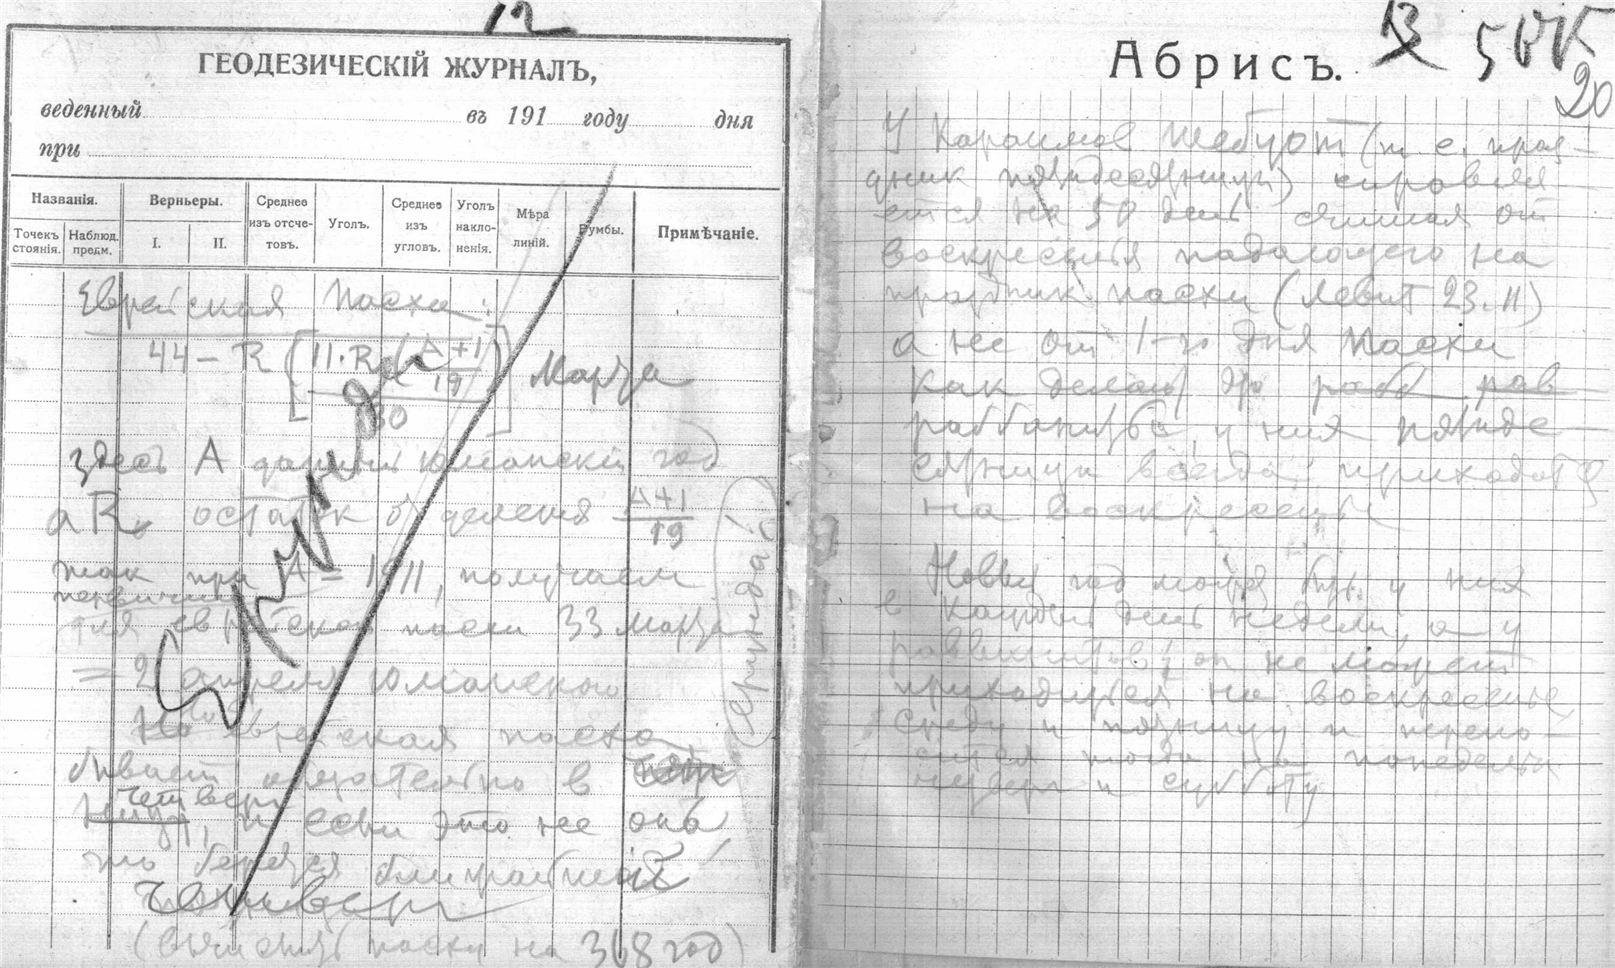 12
ГЕОДЕЗИЧЕСКІЙ ЖУРНАЛЪ,
веденный въ 191 году дня
при
Названія. Верньеры. Среднее изъ отсче-товъ. Уголъ. Среднее изъ угловъ. Уголъ накло-ненія. Мѣра линій. Румбы. Примѣчаніе.
Точекъ стоянія. Наблюд. предм. I. II.
Еврейская Пасха:
44 – R [11·R (A+1/19) / 30] Марта
здесь А данный юлианский год
а R остаток от деления A+1/19
так при А = 1911, получаем
для еврейской пасхи 33 марта
= 2 апреля юлианского
Но еврейская пасха
бывает обязательно в
четверг
, и если это не она
то берется ближайший
четверг
(вычислить пасху на 368 год)
Ерунда
(Ерунда)
Абрисъ.
13 20
У Караимов Шебуот (т е. празд-
дник пятидесятницы) справля
ется на 50 день считая от
воскресенья падающего на
праздник пасхи (Левит 23.11)
а не от 1-го дня Пасхи
как делают это рабб
раббанисты, у них пятиде-
сятница всегда приходится
на воскресенье
Новый год может быть у них
в каждый день недели, а у
раввинистов он не может
приходиться на воскресенье,
среду и пятницу и перено-
сится тогда на понедельн
четверг и субботу